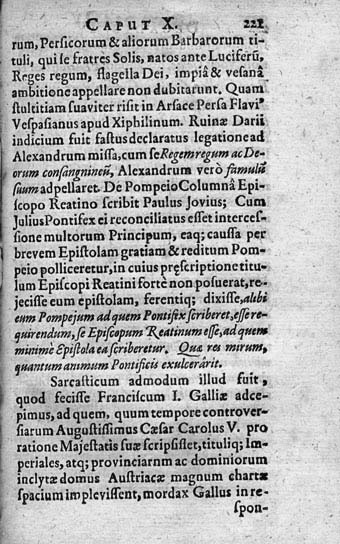 CAPUT X. 221
rum, Persicorum & aliorum Barbarorum ti-
tuli, qui se fratres Solis, natos ante Luciferū,
Reges regum, flagella Dei, impiâ & vesanâ
ambitione appellare non dubitarunt. Quam
stultitiam suaviter risit in Arsace Persa Flavi9
Vespasianus apud Xiphilinum. Ruinæ Darii
indicium fuit fastus declaratus legatione ad
Alexandrum missa, cum se Regem regum ac De-
orum consangvineū, Alexandrum verò famulū
suum adpellaret. De Pompeio Columnâ Epi-
scopo Reatino scribit Paulus Jovius; Cum
Julius Pontifex ei reconciliatus esset interces-
sione multorum Principum, eaq; caussa per
brevem Epistolam gratiam & reditum Pom-
peio polliceretur, in cuius pręscriptione titu-
lum Episcopi Reatini fortè non posuerat, re-
jecisse eum epistolam, ferentiq; dixisse, alibi
eum Pompejum ad quem Pontifix scriberet, esse re-
quirendum, se Episcopum Reatinum esse, ad quem
minime Epistola ea scriberetur. Quæ res mirum,
quantum animum Pontificis exulcerârit.
Sarcasticum admodum illud fuit,
quod fecisse Franciscum I. Galliæ adce-
pimus, ad quem, quum tempore controver-
siarum Augustissimus Cæsar Carolus V. pro
ratione Majestatis suæ scripsisset, tituliq; Im-
periales, atq; provinciarum ac dominiorum
inclytæ domus Austriacæ magnum chartæ
spacium implevissent, mordax Gallus in re-
spon-